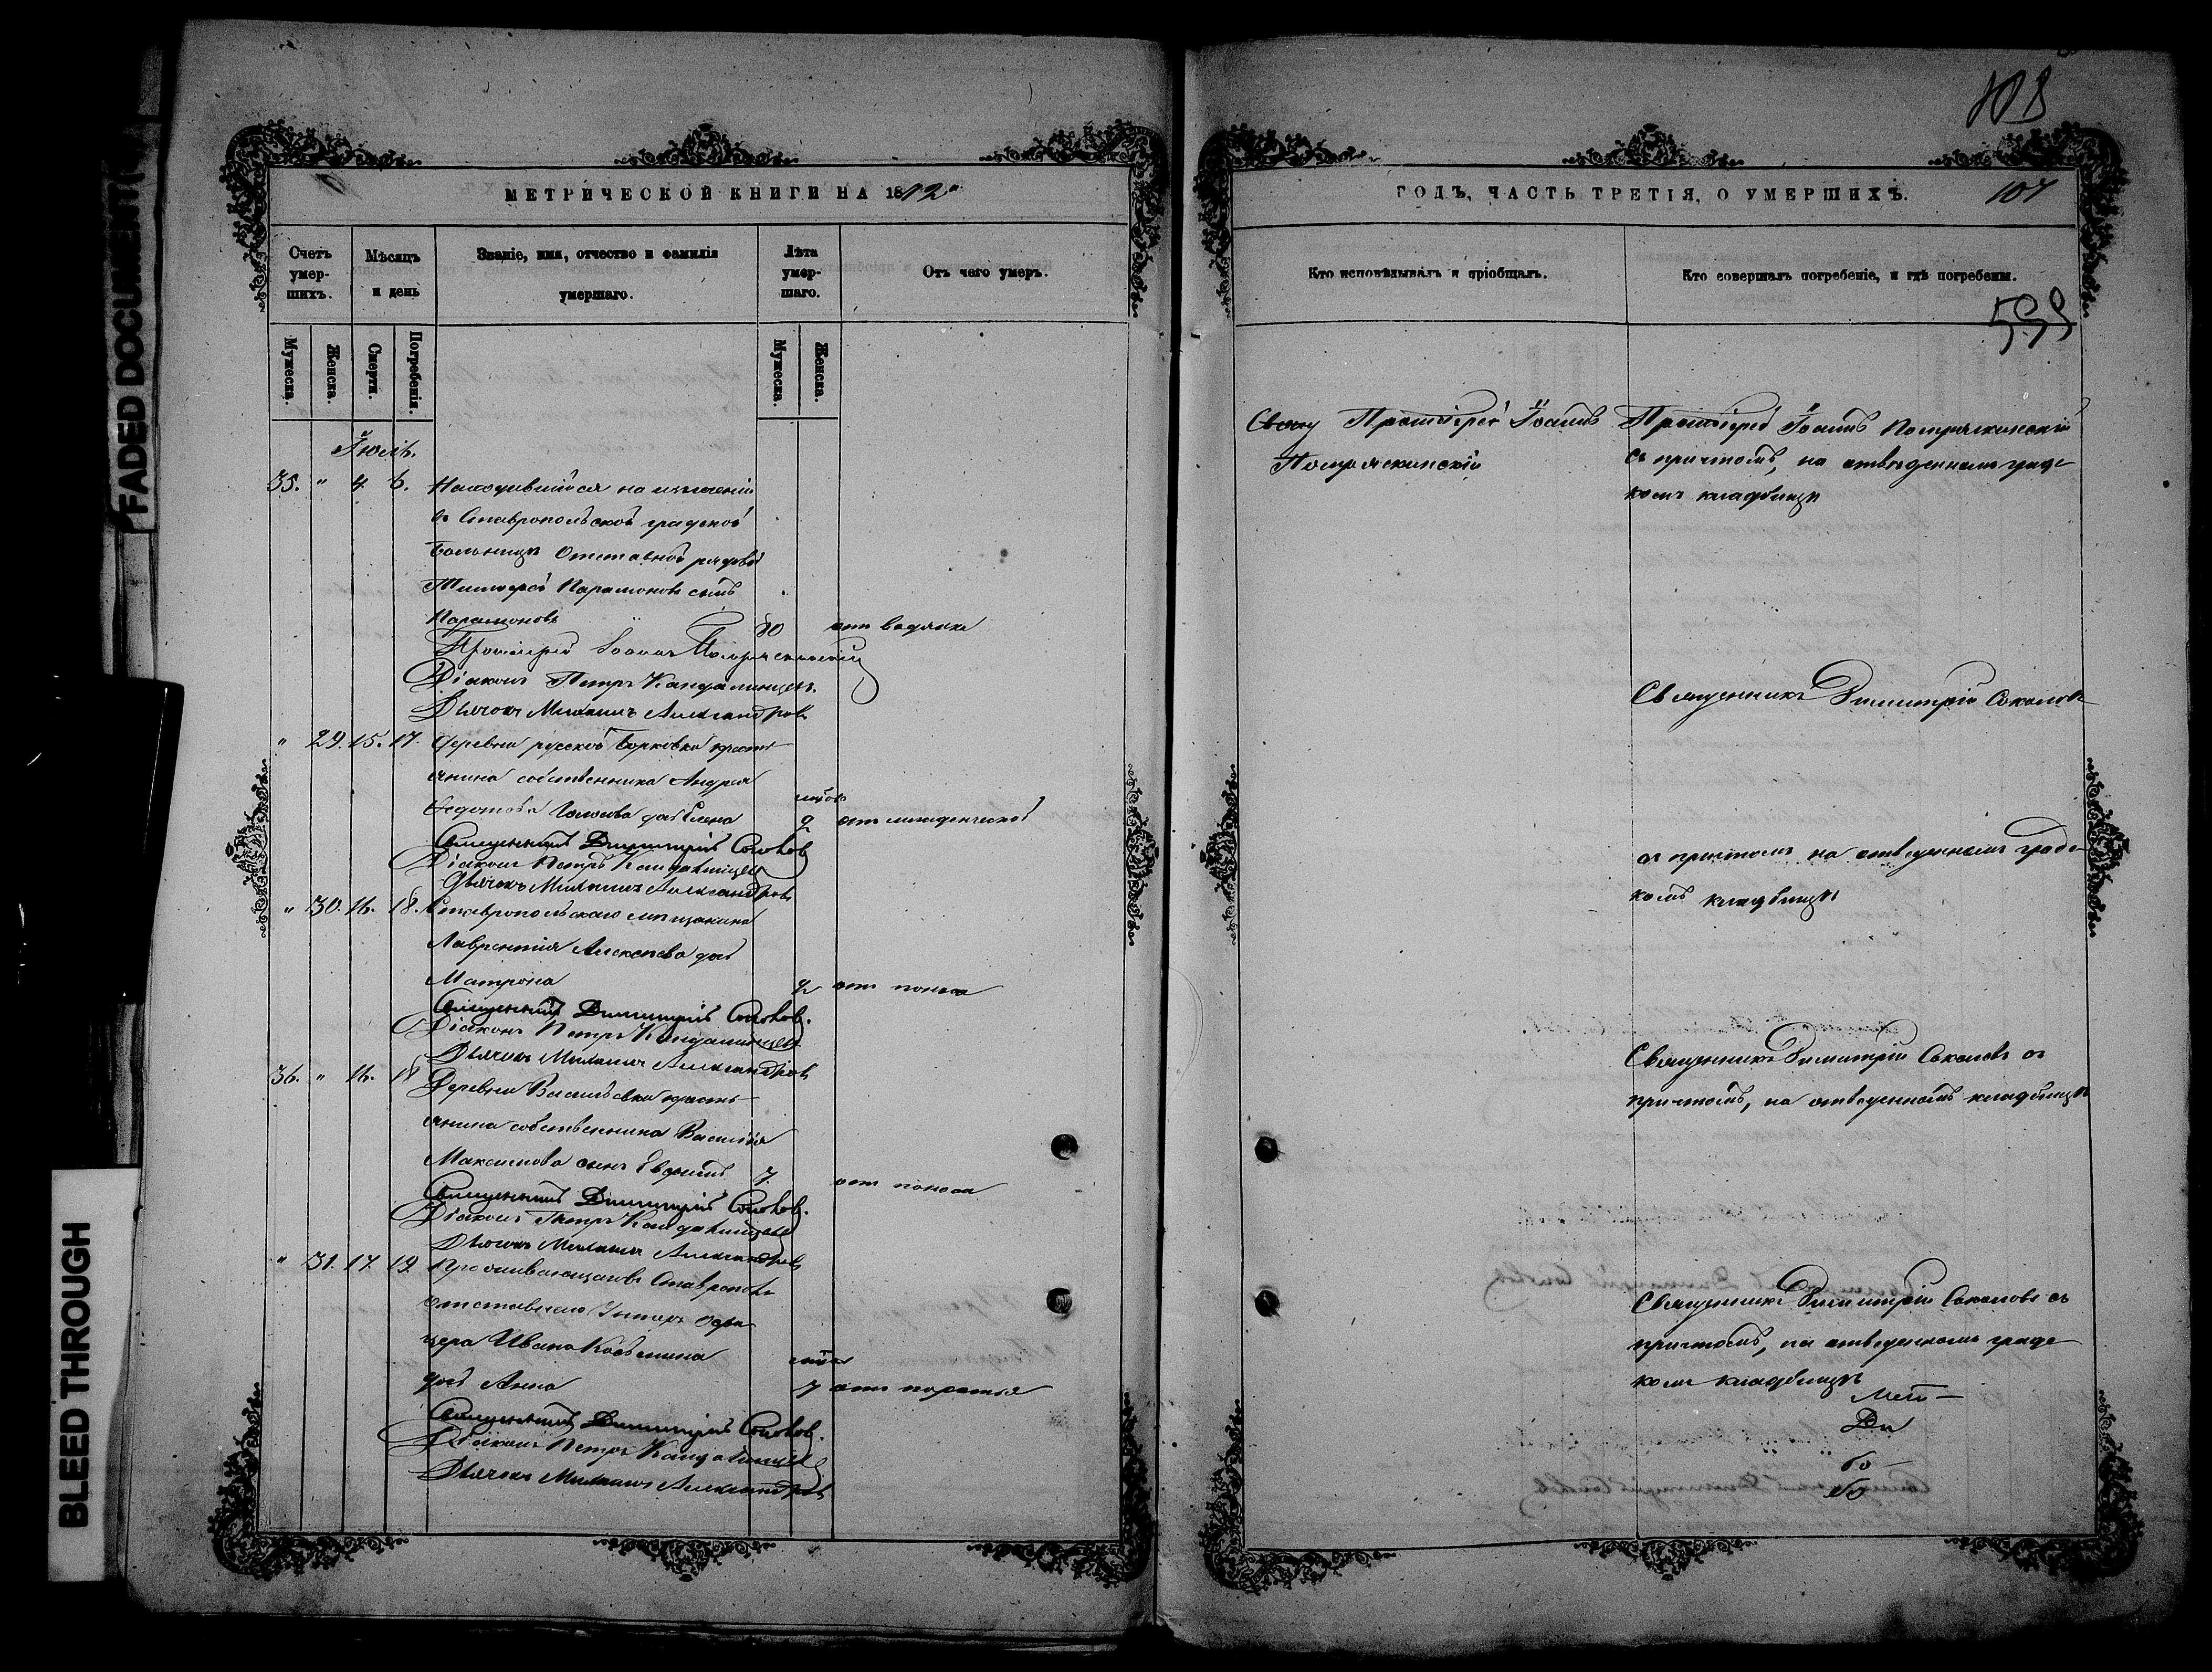 FADED DOCUMENT
BLEED THROUGH
МЕТРИЧЕСКОЙ КНИГИ НА 1872
Счетъ умер-
шихъ.
Мѣсяцъ
и день
Званіе, имя, отчество и фамилія
умершаго.
Лѣта
умер-
шаго.
Отъ чего умеръ.
Мужеска.
Женска.
Смерти.
Погребенія.
Мужеска.
Женска.
Іюль.
35. " 4. 6. Находившійся на излеченіи
въ Ставропольской градской
больницѣ Отставной рядовой
Тимофей Парамоновъ сынъ
Парамоновъ 80 отъ водянки
Протоіерей Іоаннъ
Діаконъ Петръ Кандалинцевъ
Дьячекъ Михаилъ Александровъ
" 29. 15. 17. Деревни русской Борковки кресть-
янина собственника Андрея
Федотова дочь Елена 9 отъ младенческой
Священникъ Димитрій Соколовъ
Діаконъ Петръ Кандалинцевъ
Дьячекъ Михаилъ Александровъ
" 30. 16. 18. Ставропольскаго мѣщанина
Лаврентія Алексѣева дочь
Матрона отъ поноса
Священникъ Димитрій Соколовъ.
Діаконъ Петръ Кандалинцевъ
Дьячекъ Михаилъ Александровъ
36. " 16. 18 Деревни Васильевки кресть-
янина собственника Василія
Максимова сынъ Евфимъ 7. отъ поноса
Священникъ Димитрій Соколовъ.
Діаконъ Петръ Кандалинцевъ
Дьячекъ Михаилъ Александровъ
" 31. 17. 19. Проживающаго въ Ставрополѣ
отставнаго Унтеръ офи-
цера Ивана Козьмина
дочь Анна 7 отъ
Священникъ Димитрій Соколовъ.
Діаконъ Петръ Кандалинцевъ
Дьячекъ Михаилъ Александровъ
108
ГОДЪ, ЧАСТЬ ТРЕТІЯ, О УМЕРШИХЪ.
107
Кто исповѣдывалъ и пріобщалъ.
Кто совершалъ погребеніе, и гдѣ погребены.
599
Протоіерей Іоаннъ
Протоіерей Іоаннъ
съ причтомъ, на отведенномъ градс
комъ кладбищѣ
Священникъ Димитрій Соколовъ
съ причтомъ на отведенномъ градс-
комъ кладбищѣ
Священникъ Димитрій Соколовъ съ
причтомъ, на отведенномъ кладбищѣ
Священникъ Димитрій Соколовъ съ
причтомъ, на отведенномъ градс
комъ кладбищѣ